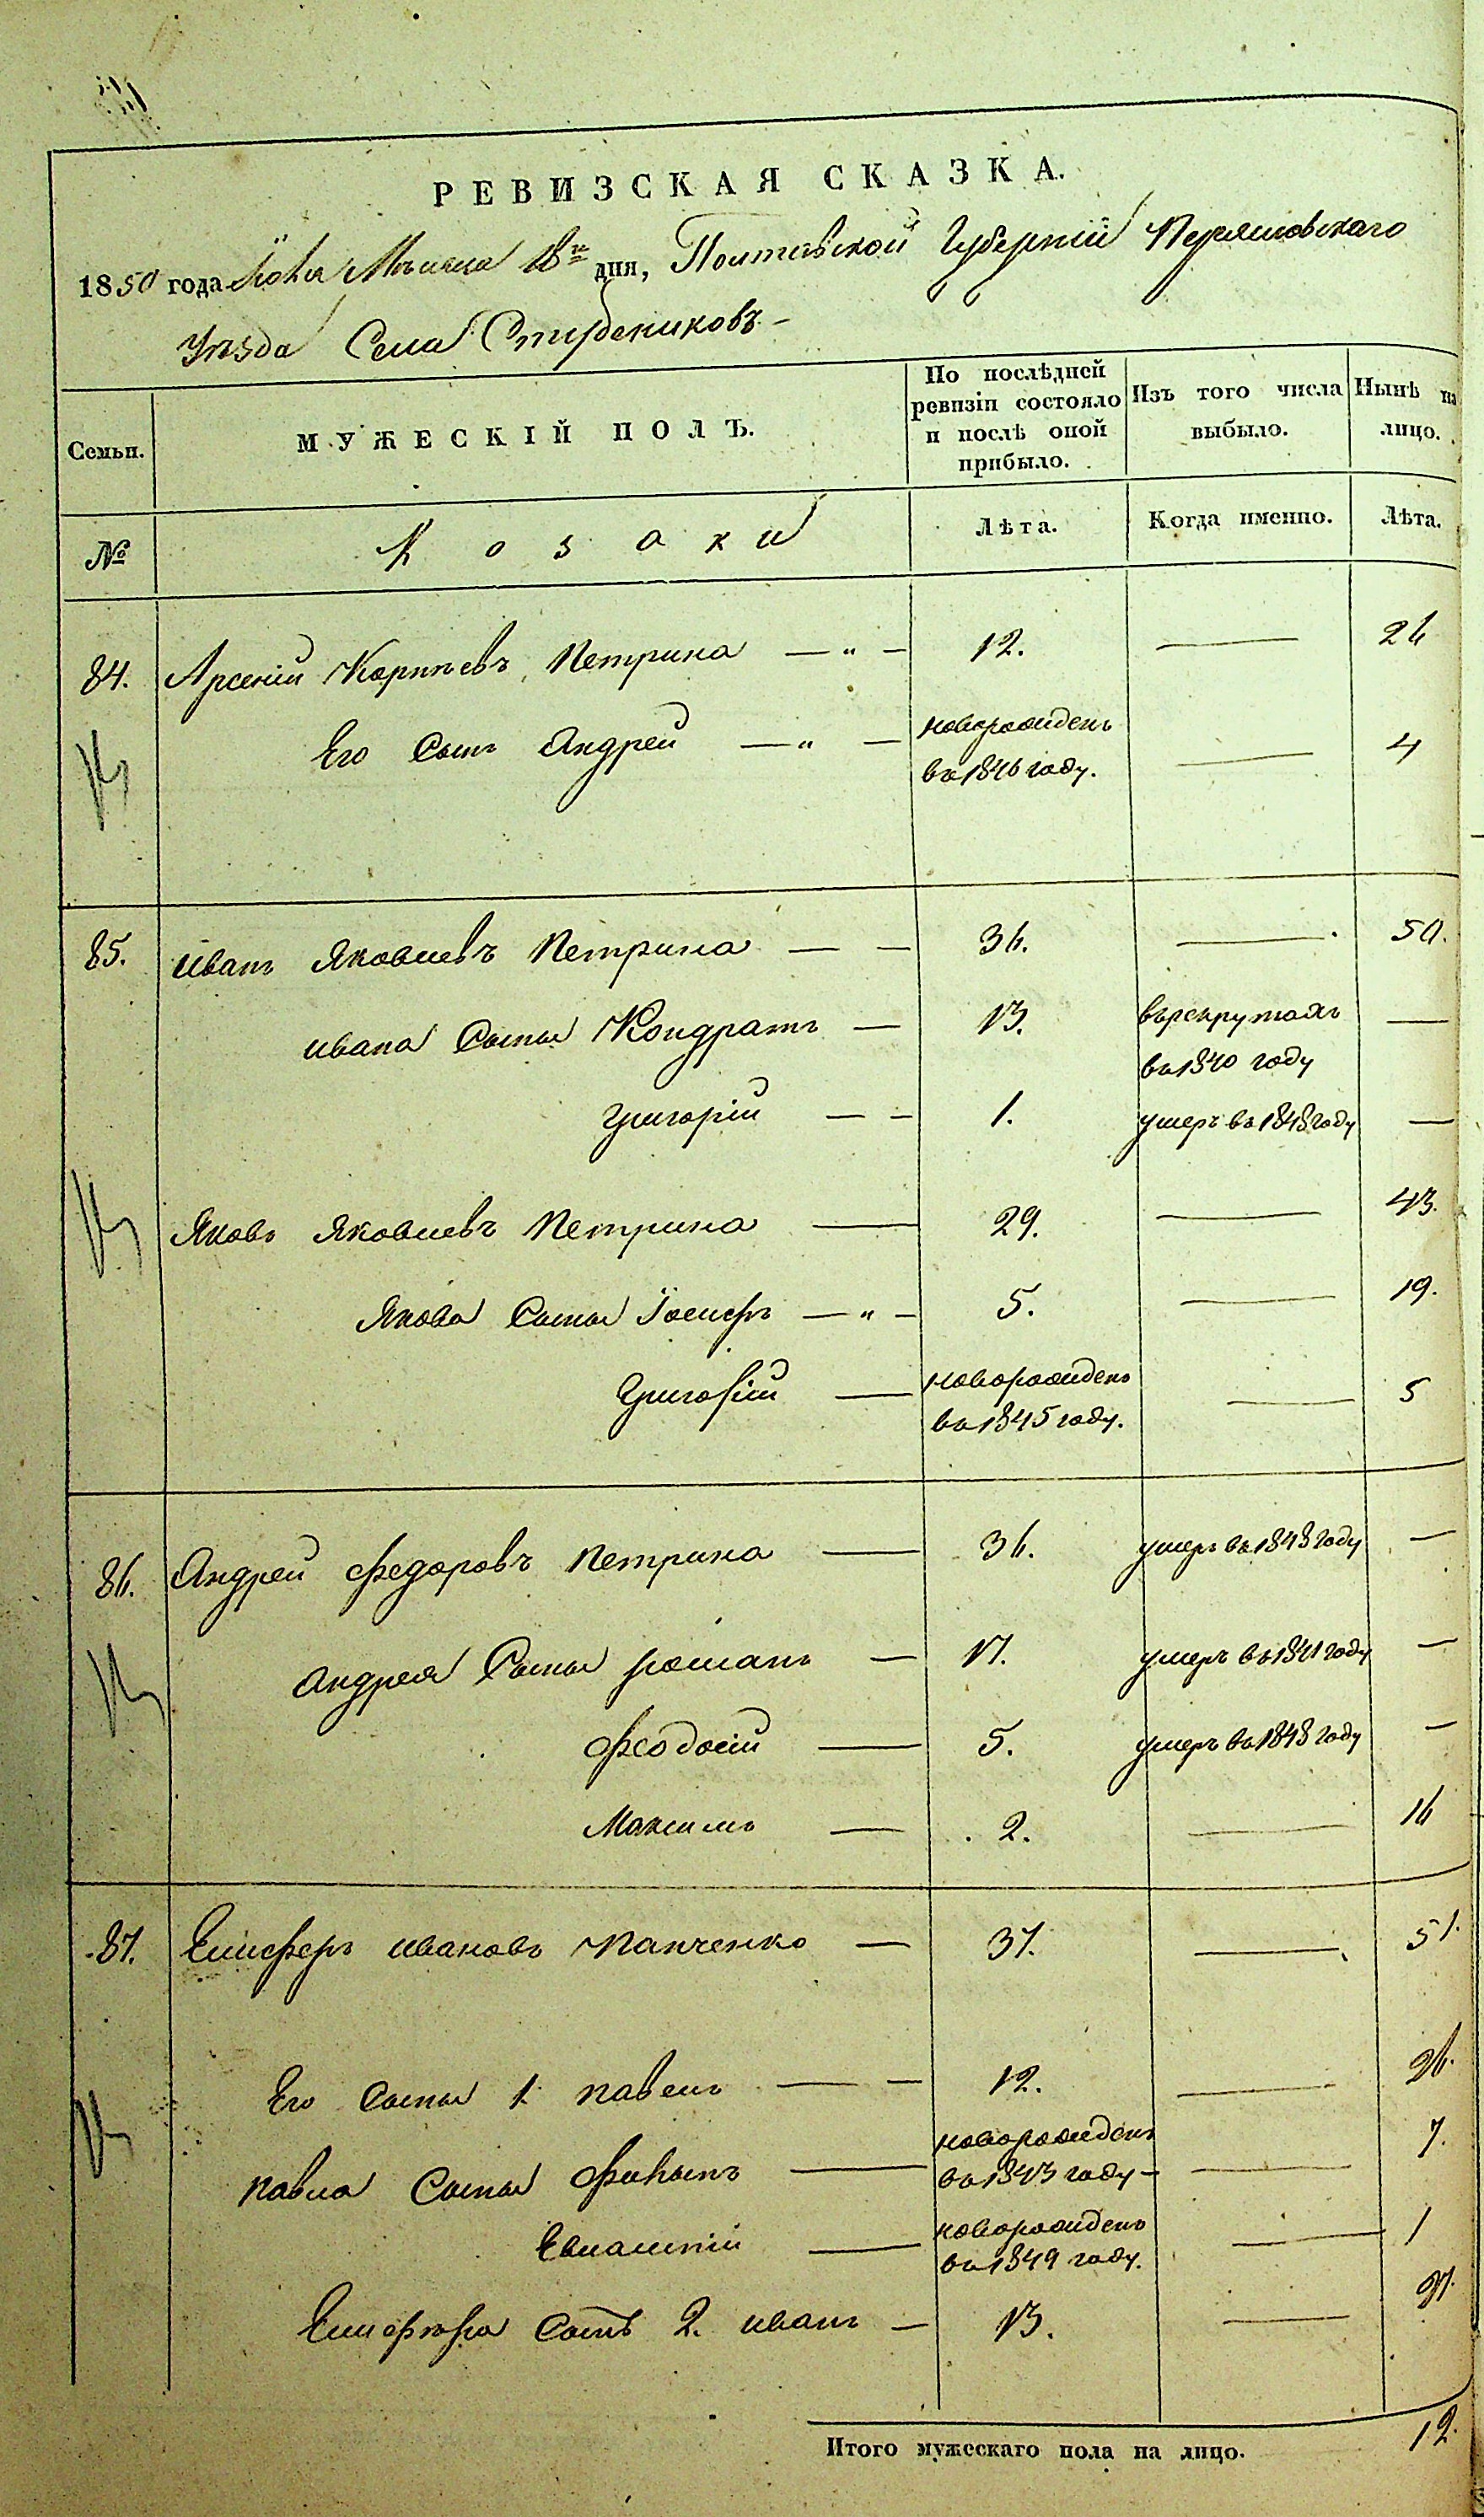 РЕВИЗСКАЯ СКАЗКА.
1850 года Июня Месяца 18го дня, Полтавской Губерніи Пирятинскаго
Уезда Села Студениковъ -
Семьи. МУЖЕСКІЙ ПОЛЪ. По послѣдней ревизіи состояло и послѣ оной прибыло. Изъ того числа выбыло. Нынѣ на лицо.
№ Козаки Лѣта. Когда именно. Лѣта.
84. Арсеній Карпѣевъ Петрина — " — 12. — 26
Его Сынъ Андрей — " — новорожденъ въ 1846 году. — 4
85. Иванъ Яковлевъ Петрина — — 36. — 50.
Ивана Сыны Кондратъ — 13. въ рекрутахъ въ 1840 году —
Григорій — — 1. умеръ въ 1848 году —
Яковъ Яковлевъ Петрина — 29. — 43.
Якова Сыны Іосифъ — " — 5. — 19.
Григорій — новорожденъ въ 1845 году. — 5
86. Андрей Федоровъ Петрина — 36. умеръ въ 1848 году —
Андрея Сыны Романъ — 17. умеръ въ 1841 году —
Феодосій — 5. умеръ въ 1848 году —
Максимъ — 2. — 16
87. Елисферъ Ивановъ Панченко — 37. — 51.
Его Сыны 1. Павелъ — — 12. — 26.
Павла Сыны Филипъ — новорожденъ въ 1843 году — — 7.
Евлампій — новорожденъ въ 1849 году. — 1
Елисфера Сынъ 2. Иванъ — 13. — 27.
Итого мужескаго пола на лицо. 12.